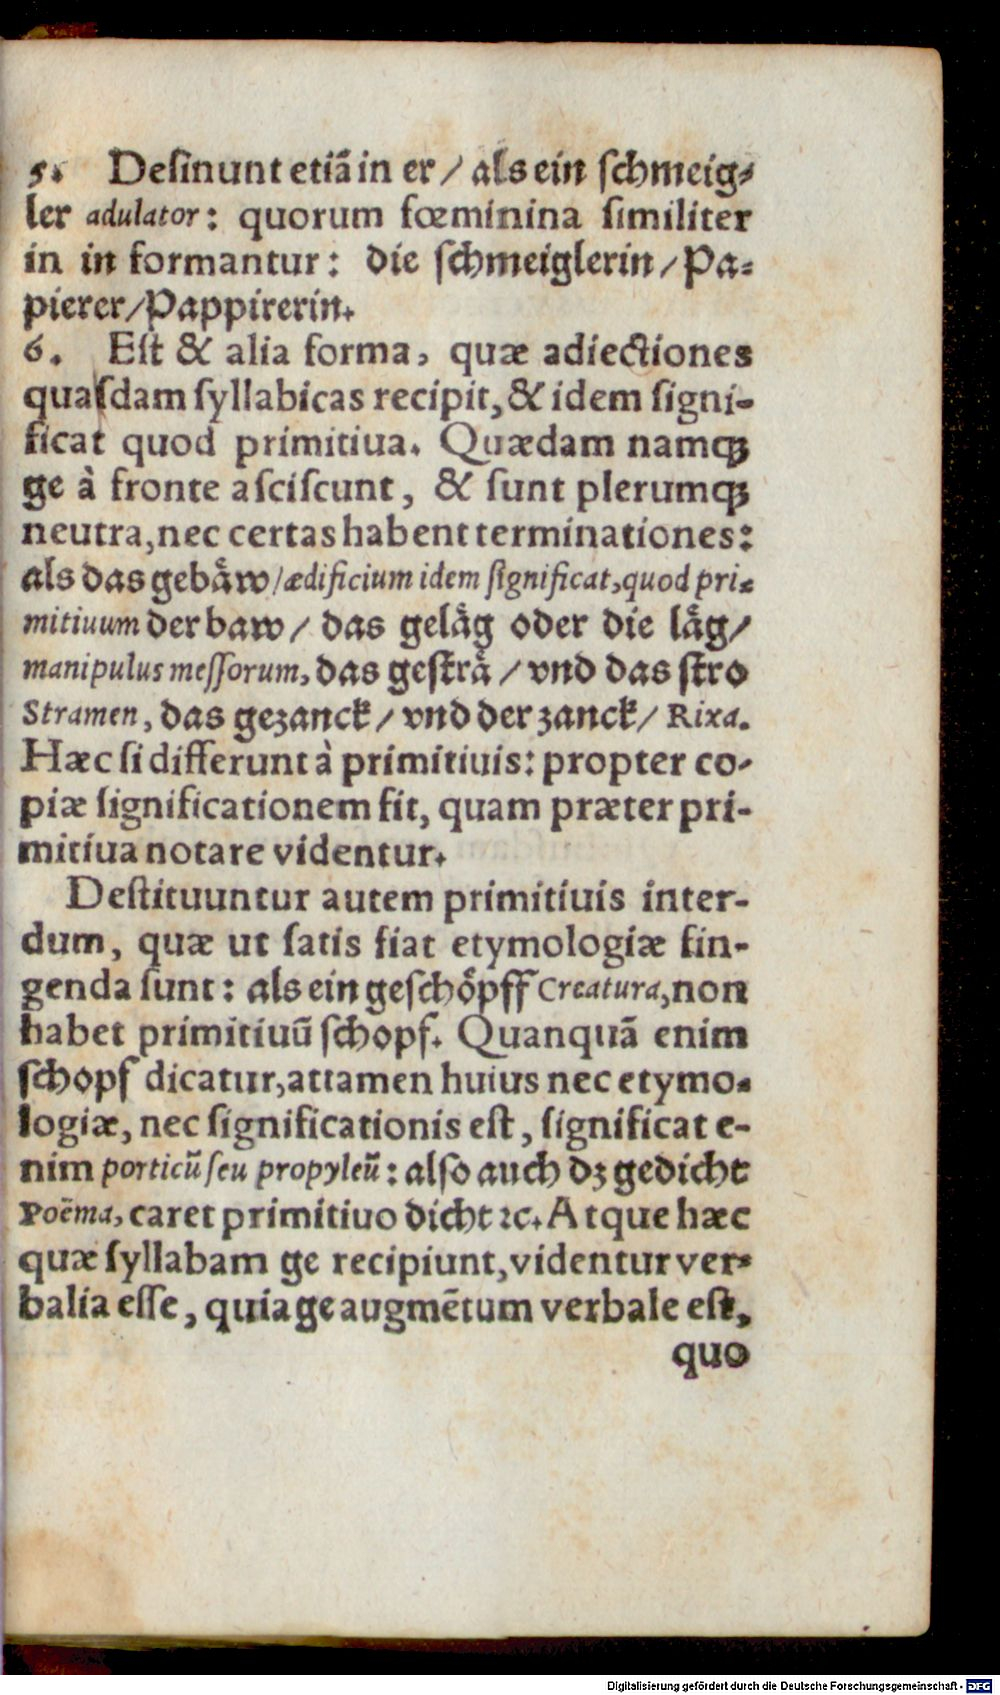 5. Desinunt etiã in er / als ein schmeig⸗
ler adulator: quorum fœminina similiter
in in formantur: die schmeiglerin / Pa⸗
pierer/Pappirerin.
6. Est & alia forma, quæ adiectiones
quasdam syllabicas recipit, & idem signi-
ficat quod primitiua. Quædam namqꝫ
ge à fronte asciscunt, & sunt plerumqꝫ
neutra, nec certas habent terminationes:
als das gebaͤw / ædificium idem significat, quod pri-
mitiuum der baw / das gelaͤg oder die laͤg/
manipulus messorum, das gestraͤ / vnd das stro
Stramen, das gezanck / vnd der zanck / Rixa.
Hæc si differunt à primitiuis: propter co-
piæ significationem fit, quam præter pri-
mitiua notare videntur.
Destituuntur autem primitiuis inter-
dum, quæ ut satis fiat etymologiæ fin-
genda sunt: als ein geschoͤpff Creatura, non
habet primitiuũ schopf. Quanquã enim
schopf dicatur, attamen huius nec etymo-
logiæ, nec significationis est, significat e-
nim porticũ seu propyleũ: also auch dz gedicht
Poẽma, caret primitiuo dicht ꝛc. Atque hæc
quæ syllabam ge recipiunt, videntur ver-
balia esse, quia ge augmẽtum verbale est,
quo
Digitalisierung gefördert durch die Deutsche Forschungsgemeinschaft - DFG